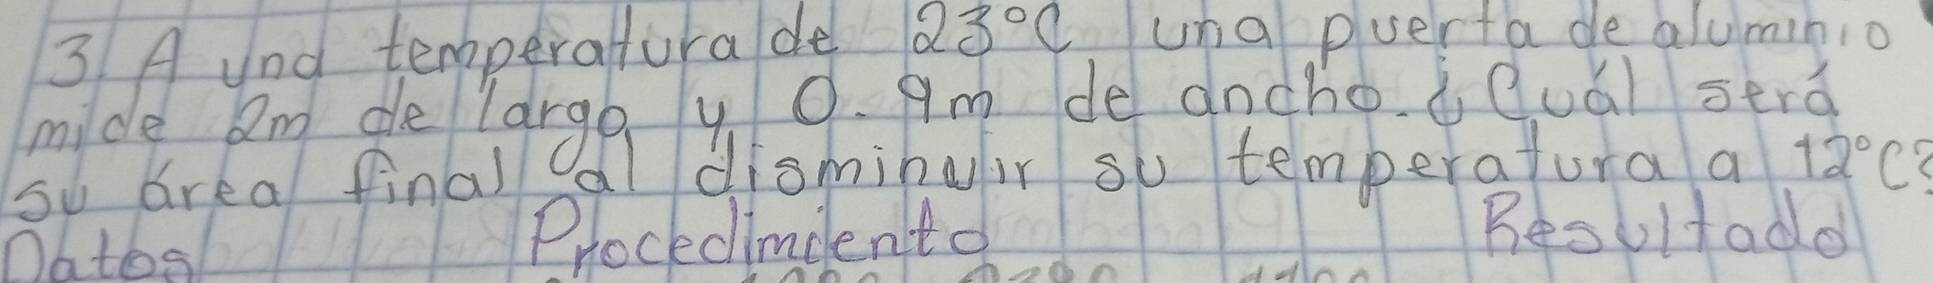 3. A una temperatura de 23°C una puerta de aluminio
mide 2m de largo y 0.9m de ancho. ¿Cuál será
su área final al disminuir su temperatura a 12°C?
Datos Procedimiento Resultado